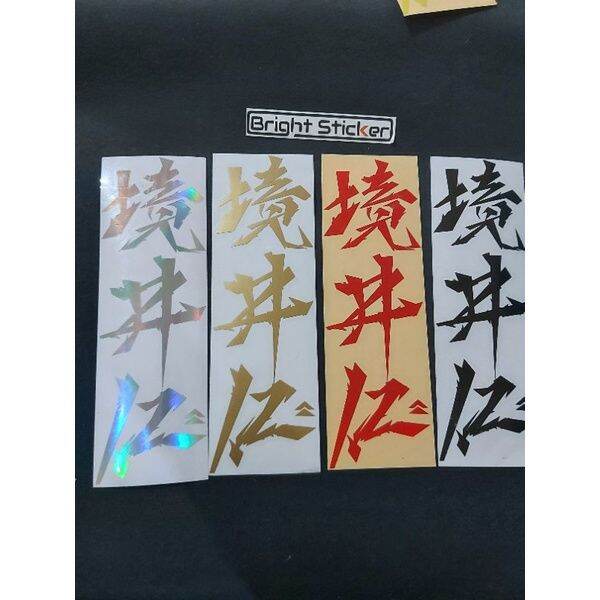 Bright Sticker
境井仁
境井仁
境井仁
境井仁